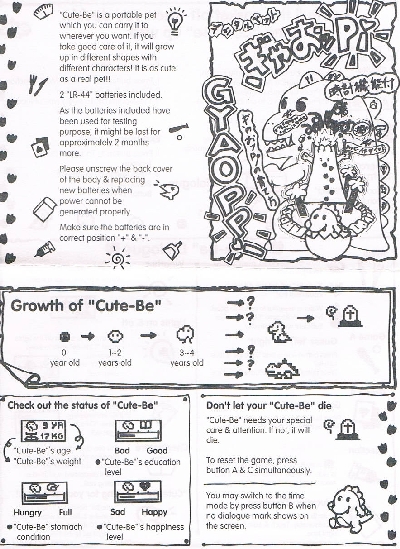 "Cute-Be" is a portable pet
which you can carry it to
wherever you want. If you
take good care of it, it will grow
up in different shapes with
different characters! It is as cute
as a real pet!!
2 "LR-44" batteries included.
As the batteries included have
been used for testing
purpose, it might be last for
approximately 2 months
more.
Please unscrew the back cover
of the body & replacing
new batteries when
power cannot be
generated properly.
Make sure the batteries are in
correct position "+" & "-".
ぎゃおッPi
時計機能付
GYAOPPI
Growth of "Cute-Be"
?
?
?
?
0
year old
1~2
years old
3~4
years old
Check out the status of "Cute-Be"
9 YR
17 KG
"Cute-Be"'s age
"Cute-Be"'s weight
Bad Good
"Cute-Be"'s education
level
Hungry Full
"Cute-Be" stomach
condition
Sad Happy
"Cute-Be"'s happiness
level
Don't let your "Cute-Be" die
"Cute-Be" needs your special
care & attention. If not, it will
die.
To reset the game, press
button A & C simultanously.
You may switch to the time
mode by press button B when
no dialogue mark shows on
the screen.